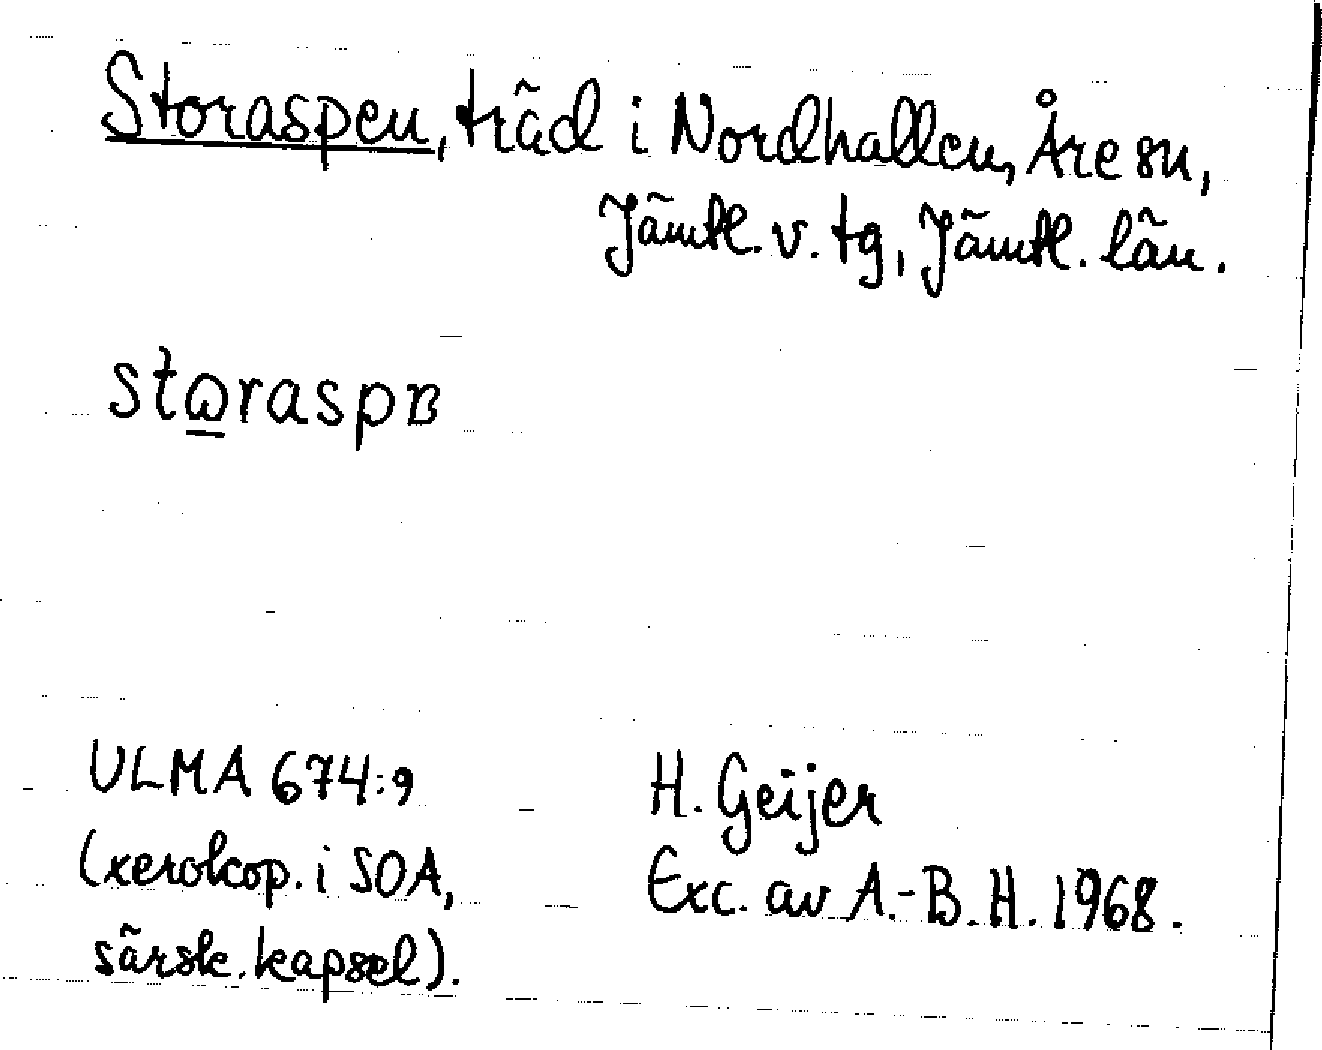 Storaspen, träd i Nordhallen, Åre sn,
Jämtl. v. tg, Jämtl. län.
stѡraspʙ
ULMA 674:9
(xerokop. i SOA,
särsk. kapsel).
H. Geijer
Exc. av A.-B. H. 1968.